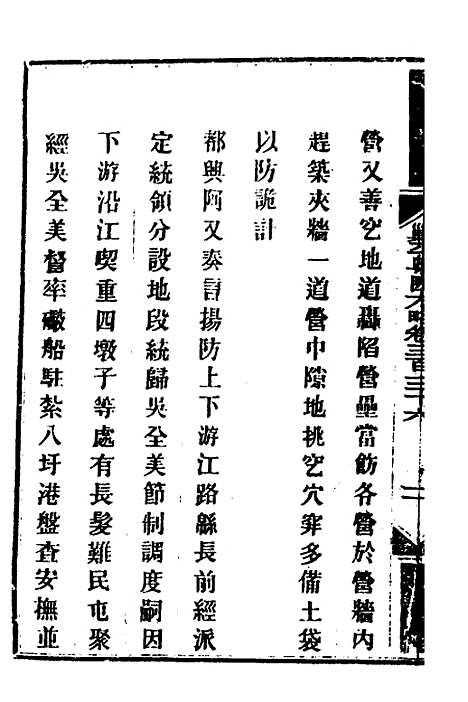 營又善穵地道轟陷營壘當飭各營於營牆內
趕築夾牆一道營中隙地挑穵穴穽多備土袋
以防詭計
都興阿又奏言揚防上下游江路緜長前經派
定統領分設地段統歸吳全美節制調度嗣因
下游沿江喫重四墩子等處有長髮難民屯聚
經吳全美督率礮船駐紮八圩港盤查安撫並